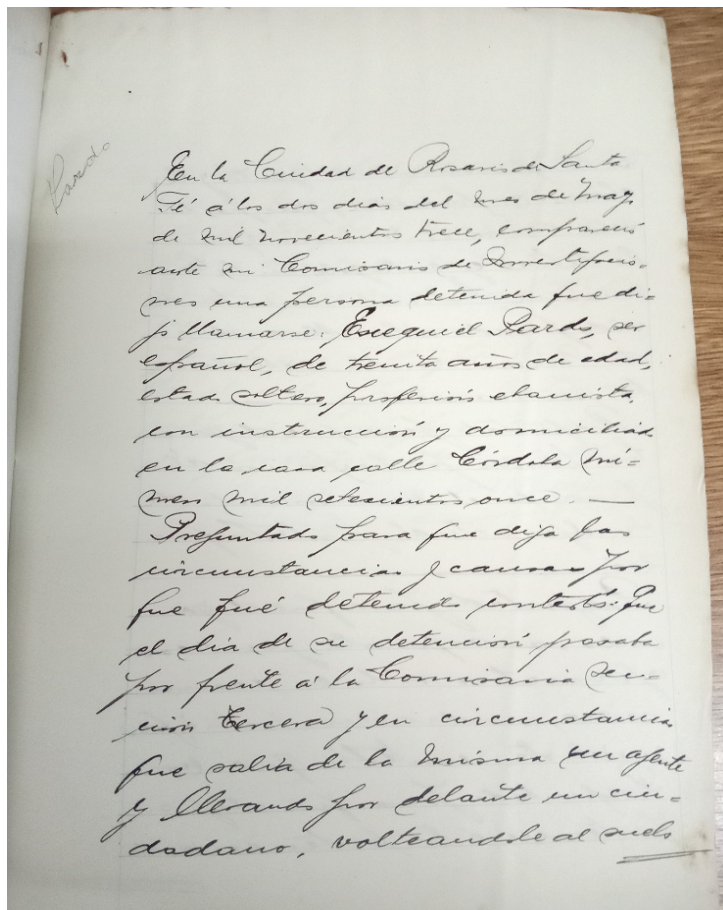 En la Ciudad de Rosario de Santa
Fé á los dos dias del mes de Mayo
de mil novecientos trece, compareció
ante mi Comisario de Investigacio-
nes una persona detenida que di-
jo llamarse: Esequiel Pardo, ser
español, de treinta años de edad,
estado soltero, profesión ebanista,
con instrucción y domiciliado
en la casa calle Córdoba nú-
mero mil setecientos once. —
Preguntado para que diga las
circunstancias y causas por
que fué detenido contestó: Que
el dia de su detención pasaba
por frente á la Comisaria sec-
ción tercera y en circunstancias
que salia de la misma un agente
y llevando por delante un ciu-
dadano, volteandole al suelo